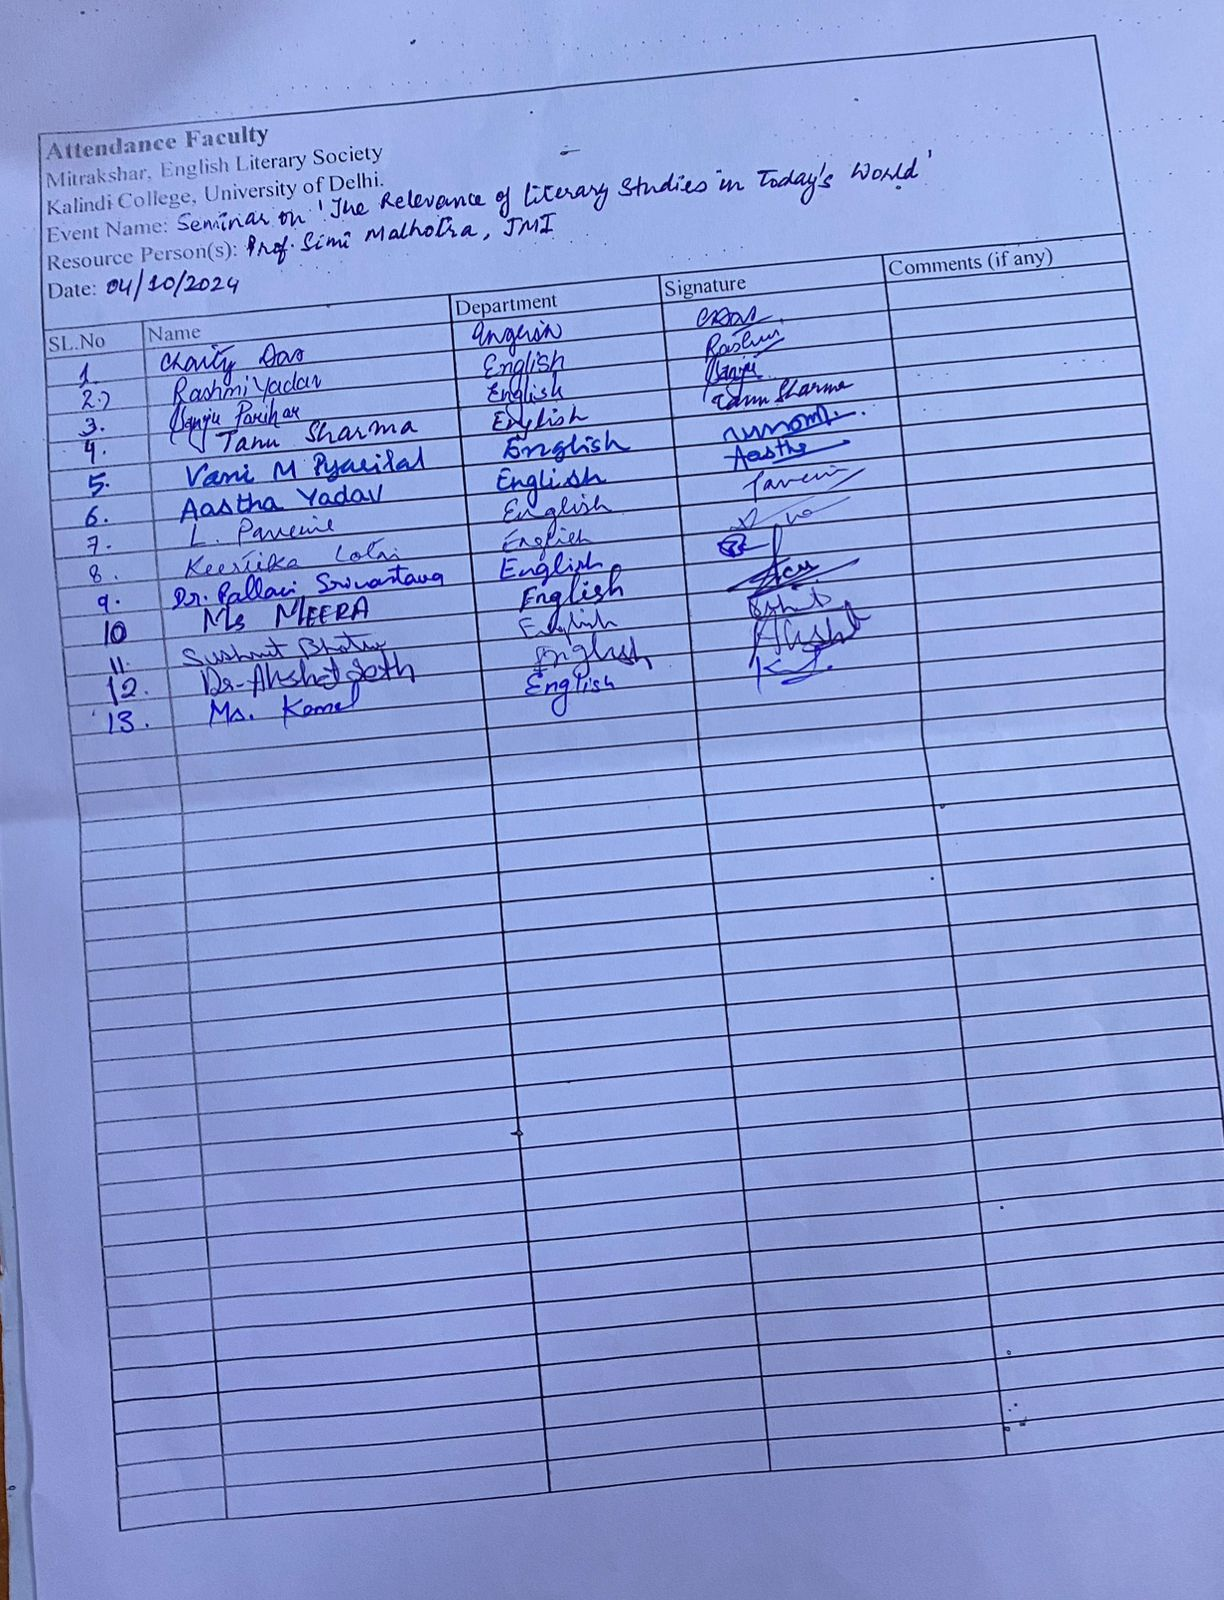 Attendance Faculty
Mitrakshar, English Literary Society
Kalindi College, University of Delhi.
Event Name: Seminar on 'The Relevance of Literary Studies in Today's World'
Resource Person(s): Prof. Simi Malhotra, JMI
Date: 04/10/2024
SL.No Name Department Signature Comments (if any)
1 Charity Das English CDas
2.) Rashmi Yadav English Rashmi
3. Manju Parihar English Manju
4. Tanu Sharma English Tanu Sharma
5. Vani M Pyarilal English
6. Aastha Yadav English Aastha
7. L. Paveine English Paveine
8. Keertika Lotni English
9. Dr. Pallavi Srivastava English
10 Ms MEERA English
11. Sushmit Bhatia English
12. Dr. Akshat Seth English Akshat
13. Ms. Komal English